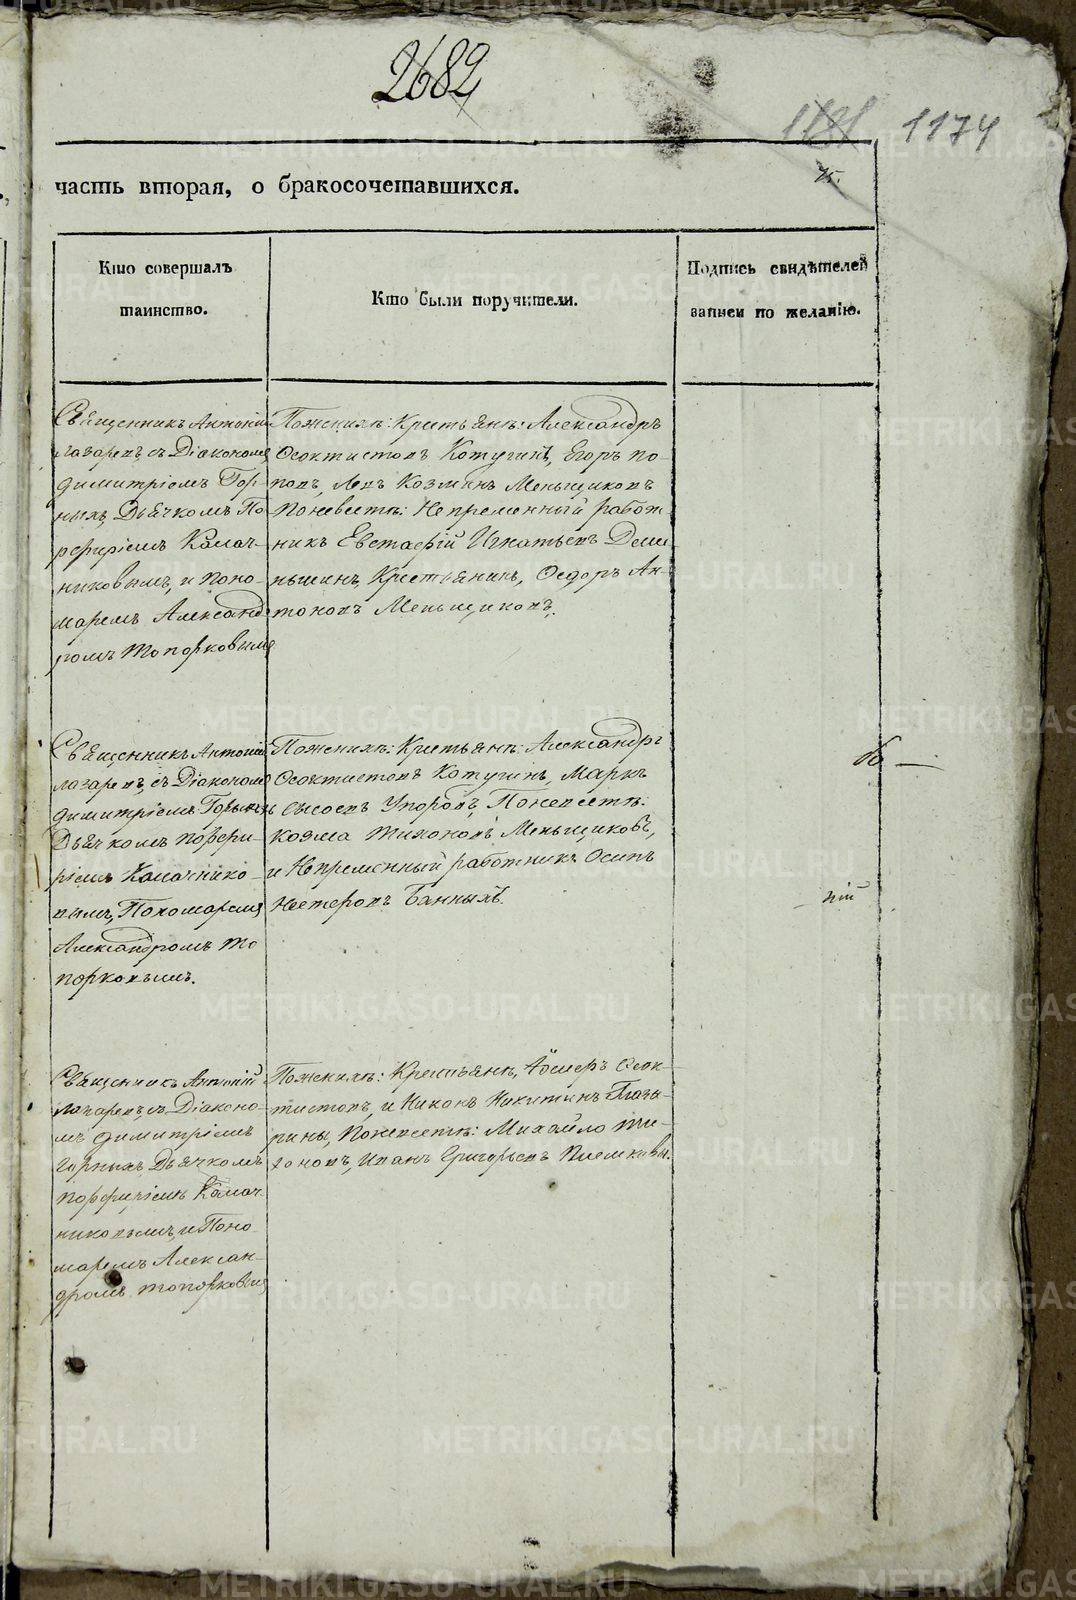 2682
1181 1174
часть вторая, о бракосочетавшихся.
Кто совершалъ
таинство.
Кто были поручители.
Подпись свидѣтелей
записи по желанію.
Священникъ Антоній
Лазаревъ, съ Діакономъ
Димитріемъ Гор-
ныхъ, Дьячкомъ По
рфиріемъ Калач-
никовымъ, и поно-
маремъ Александ
ромъ Топорковымъ
Поженихѣ: Крестьянѣ: Александръ
Ѳеоктистовъ Котугинъ, Егоръ По-
повъ, Левъ Козминъ Меньщиковъ
Поневестѣ: Непременный работ
никъ Евстафій Игнатьевъ
Крестьянинъ, Ѳедоръ Ан-
тоновъ Меньщиковъ.
Священникъ Антоній
Лазаревъ, съ Діакономъ
Димитріемъ Горныхъ
Дьячкомъ Порфи-
ріемъ Калачнико-
вымъ, Пономаремъ
Александромъ То
порковымъ.
Поженихѣ: Крестьянѣ: Александръ
Ѳеоктистовъ Котугинъ, Маркъ
Сысоевъ Упоровъ, Поневестѣ:
Козма Тихоновъ Меньщиковъ,
и Непременный работникъ Осипъ
Нестеровъ Банныхъ.
Священникъ Антоній
Лазаревъ, съ Діаконо-
мъ Димитріемъ
Горныхъ Дьячкомъ
Порфиріемъ Калач
никовымъ, и Поно-
маремъ Алексан-
дромъ Топорковымъ
Поженихѣ: Крестьянѣ, Ѳеок-
тистовъ, и Никонъ Никитинъ
Поневестѣ: Михайло Ти-
хоновъ, Иванъ Григорьевъ
METRIKI.GASO-URAL.RU